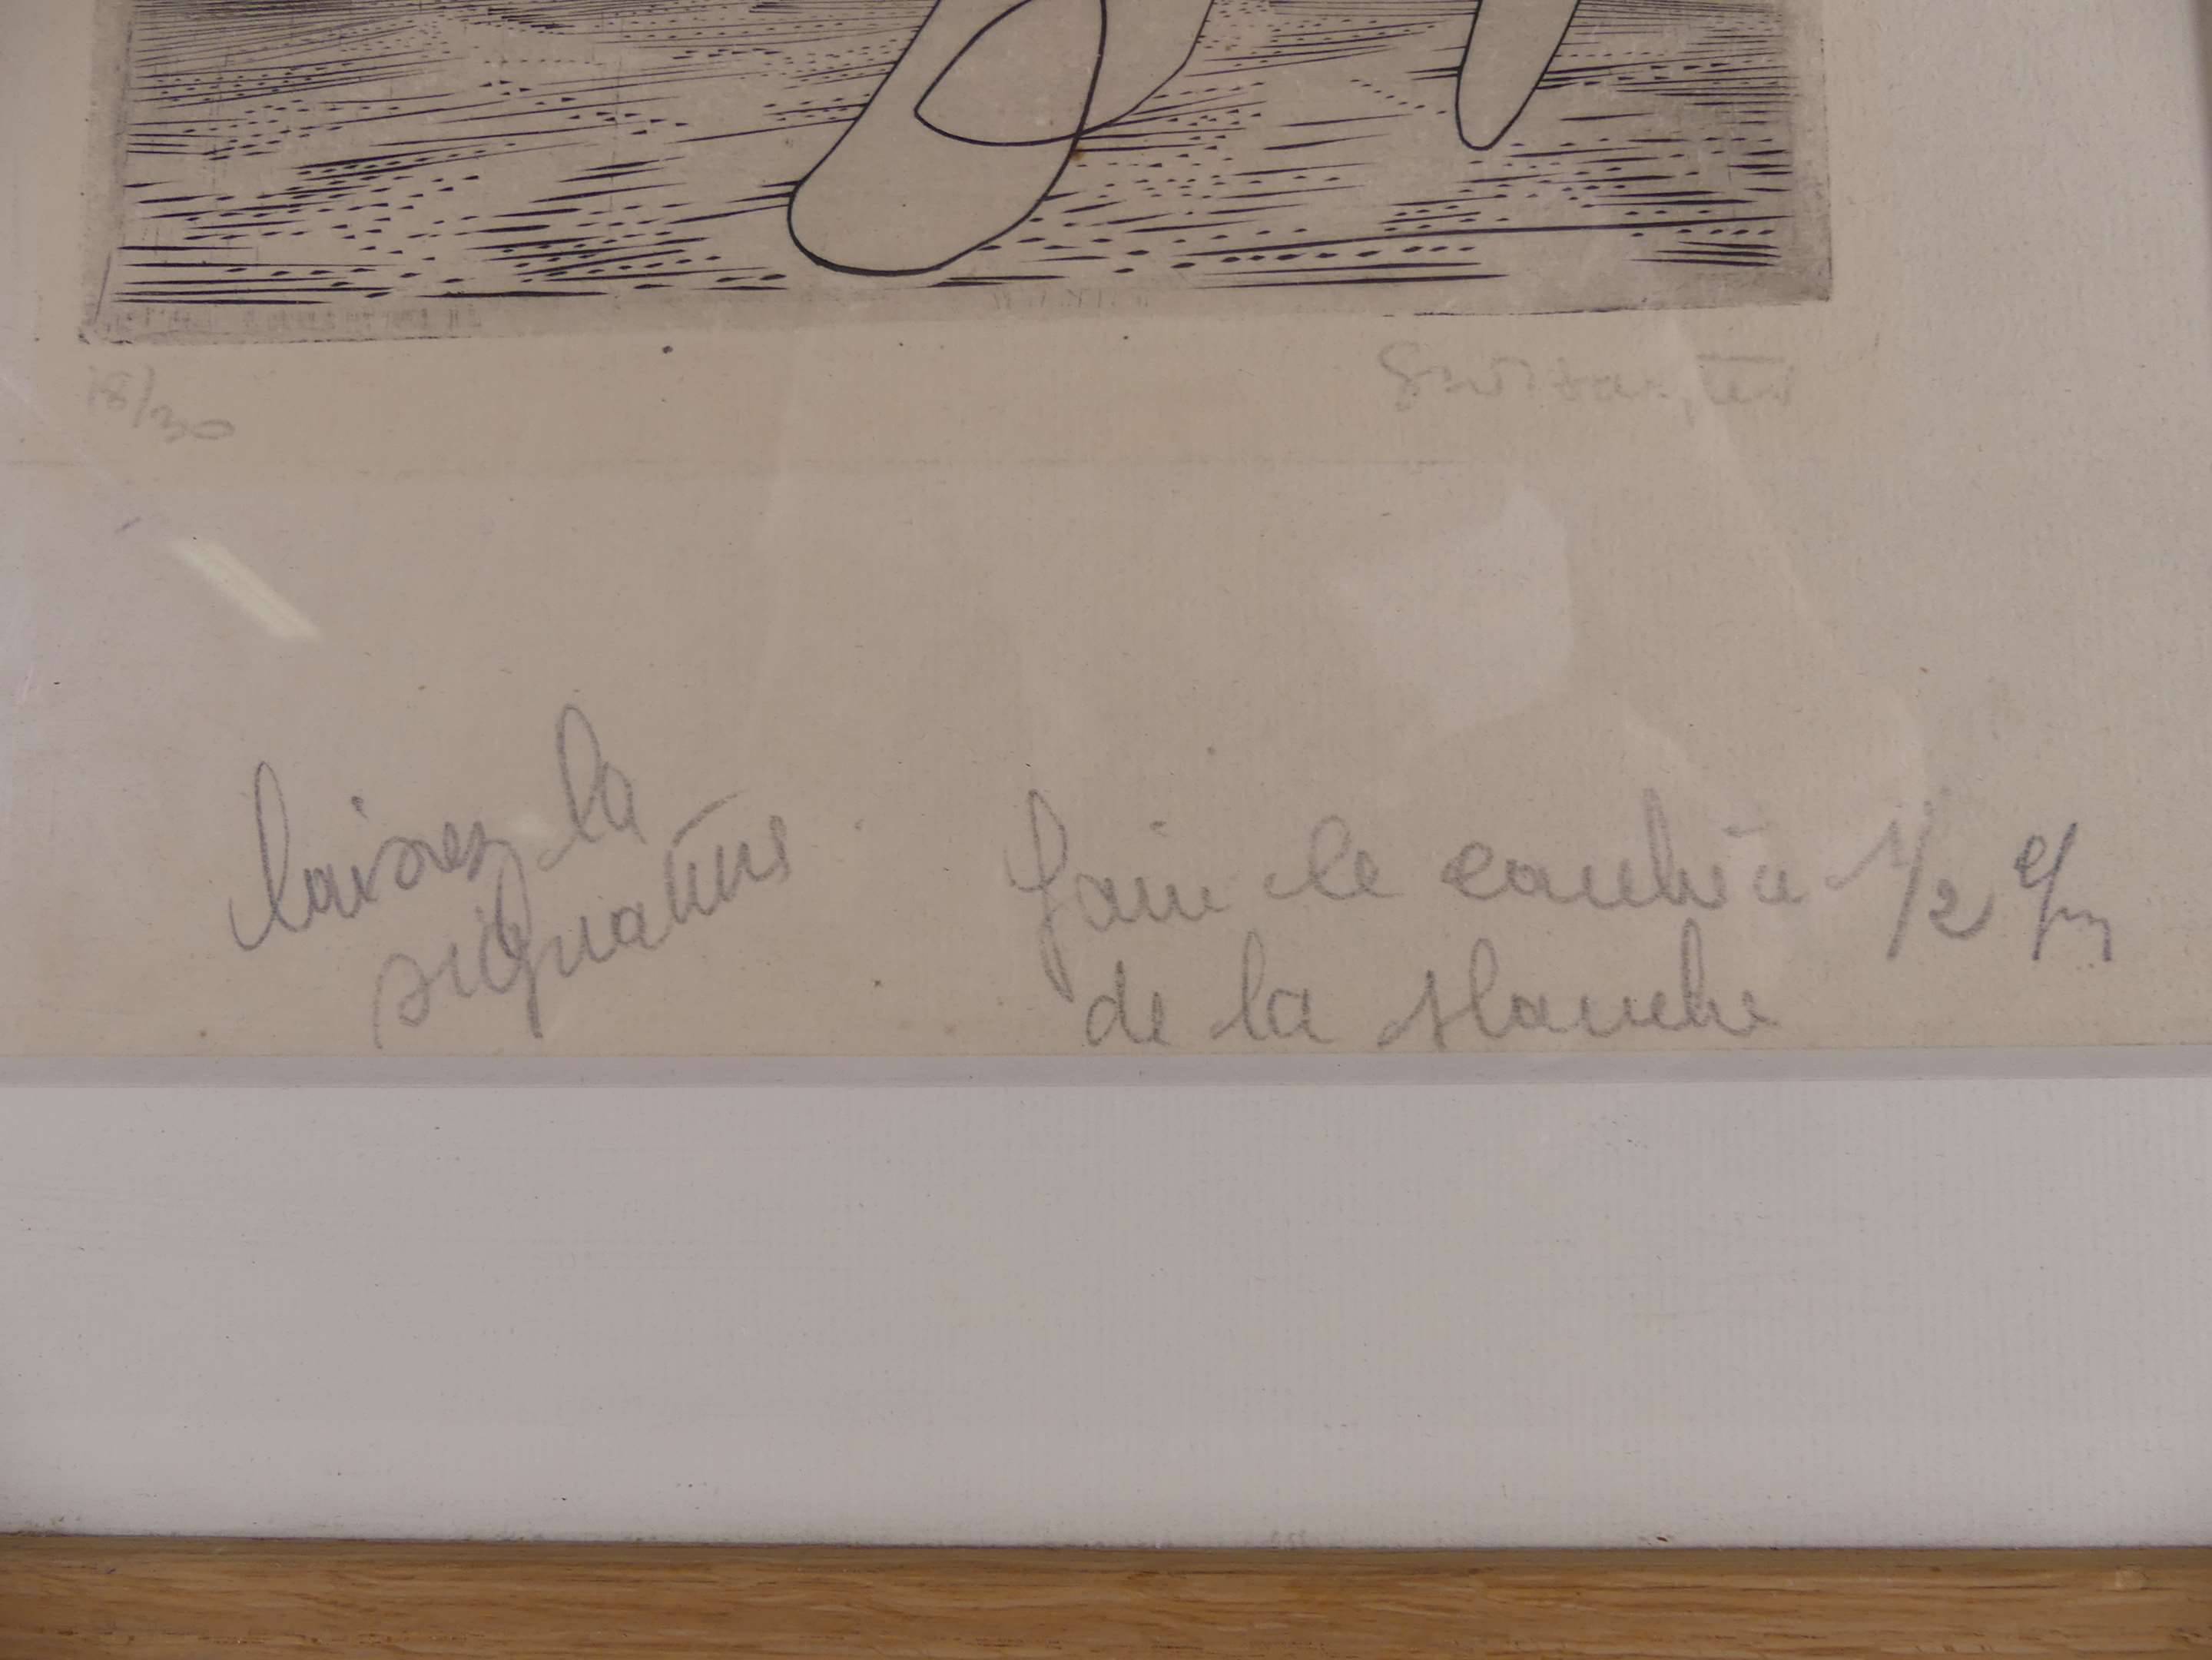 18/30
laissez la
signature
faire le cambrie 1/2 c/m
de la planche